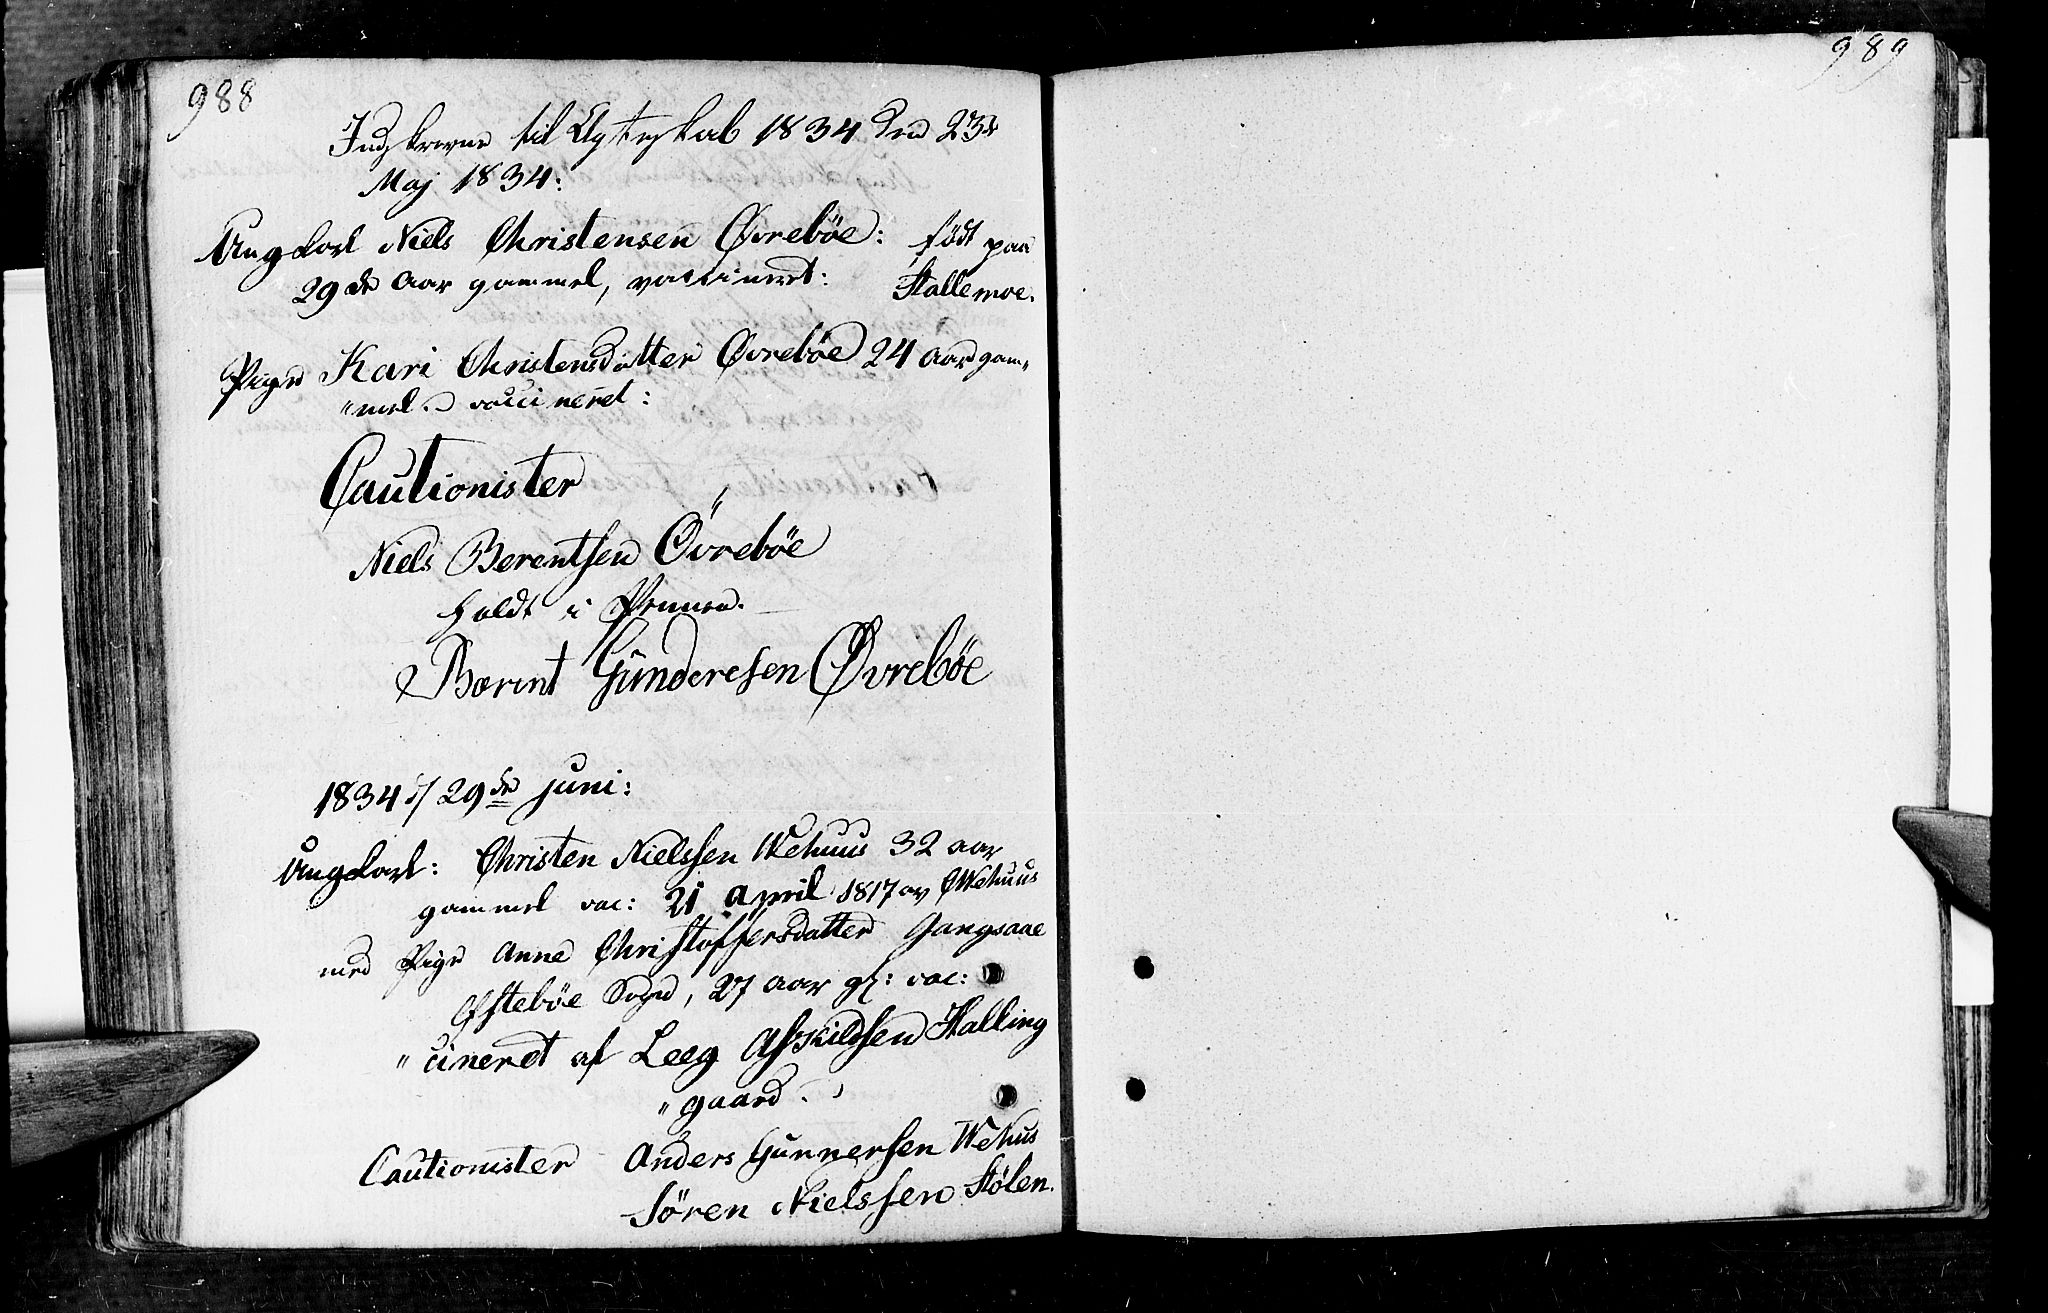 988
Indskrevne til Ægteskab 1834 den 23de
Maj 1834:
Ungkarl Niels Christensen Øvrebøe: født paa
29de aar gammel, vaccineret: Stallemoe.
Pige Kari Christensdatter Øvrebøe 24 aar gam„
„mel vaccineret:
Cautionister
Niels Berentsen Øvrebøe
holdt i Pennen.
Berent Gundersen Øvrebøe
1834 29de juni:
Ungkarl: Christen Nielssen Wehuus 32 aar
gammel vac: 21 april 1817 av Wehuus
med Pige Anne Christoffersdatter Gangsaae
Øfstebøe Sogn, 27 aar gl: vac:
„cineret af Leeg Afskildsen Halling
„gaard.
Cautionister Anders Gunnersen Wehus
Sören Nielssen Stølen.
989